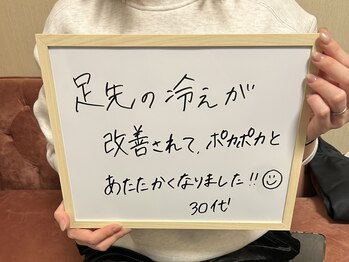 足先の冷えが
改善されて、ポカポカと
あたたかくなりました!!☺
30代